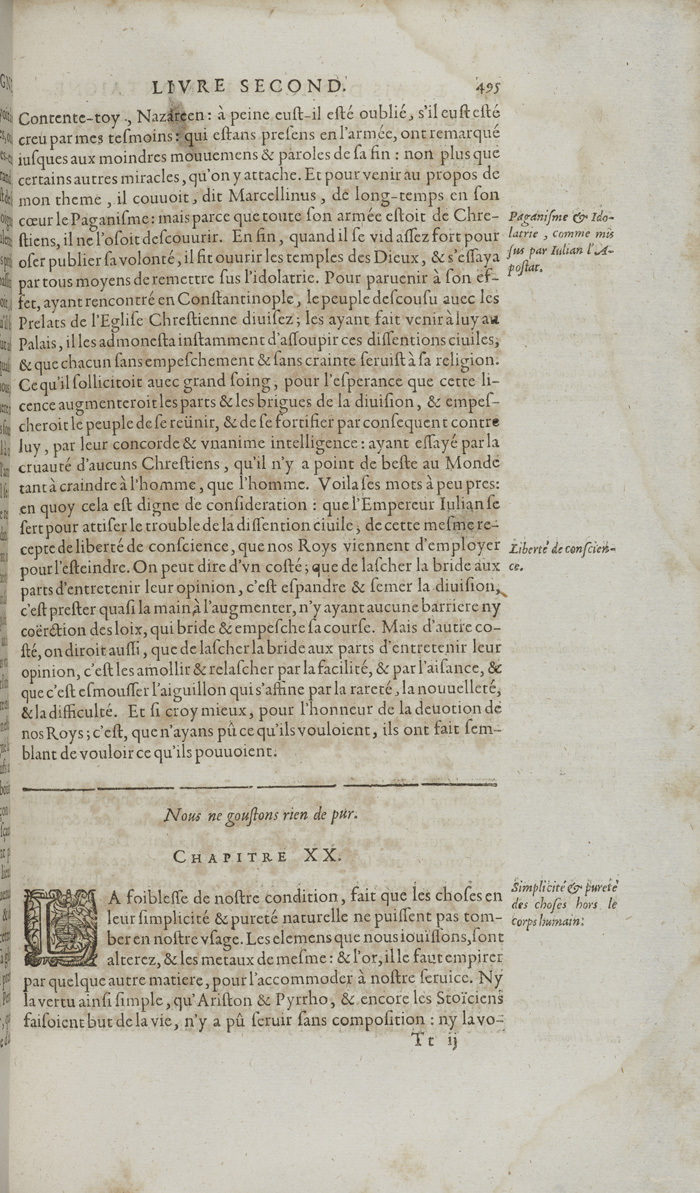 LIVRE SECOND. 495
Contente-toy, Nazareen : à peine euſt-il eſté oublié, s'il euſt eſté
creu par mes teſmoins : qui eſtans preſens en l'armée, ont remarqué
iuſques aux moindres mouuemens & paroles de ſa fin : non plus que
certains autres miracles, qu'on y attache. Et pour venir au propos de
mon theme, il couuoit, dit Marcellinus, de long-temps en ſon
cœur le Paganiſme : mais parce que toute ſon armée eſtoit de Chre-
ſtiens, il ne l'oſoit deſcouurir. En fin, quand il ſe vid aſſez fort pour
oſer publier ſa volonté, il fit ouurir les temples des Dieux, & s'eſſaya
par tous moyens de remettre ſus l'idolatrie. Pour paruenir à ſon ef-
fet, ayant rencontré en Conſtantinople, le peuple deſcouſu auec les
Prelats de l'Egliſe Chreſtienne diuiſez ; les ayant fait venir à luy au
Palais, il les admoneſta inſtamment d'aſſoupir ces diſſentions ciuiles,
& que chacun ſans empeſchement & ſans crainte ſeruiſt à ſa religion.
Ce qu'il ſollicitoit auec grand ſoing, pour l'eſperance que cette li-
cence augmenteroit les parts & les brigues de la diuiſion, & empeſ-
cheroit le peuple de ſe reünir, & de ſe fortifier par conſequent contre
luy, par leur concorde & vnanime intelligence : ayant eſſayé par la
cruauté d'aucuns Chreſtiens, qu'il n'y a point de beſte au Monde
tant à craindre à l'homme, que l'homme. Voila ſes mots à peu pres :
en quoy cela eſt digne de conſideration : que l'Empereur Iulian ſe
ſert pour attiſer le trouble de la diſſention ciuile, de cette meſme re-
cepte de liberté de conſcience, que nos Roys viennent d'employer
pour l'eſteindre. On peut dire d'vn coſté ; que de laſcher la bride aux
parts d'entretenir leur opinion, c'eſt eſpandre & ſemer la diuiſion,
c'eſt preſter quaſi la main à l'augmenter, n'y ayant aucune barriere ny
coërction des loix, qui bride & empeſche ſa courſe. Mais d'autre co-
ſté, on diroit auſſi, que de laſcher la bride aux parts d'entretenir leur
opinion, c'eſt les amollir & relaſcher par la facilité, & par l'aiſance, &
que c'eſt eſmouſſer l'aiguillon qui s'affine par la rareté, la nouuelleté,
& la difficulté. Et ſi croy mieux, pour l'honneur de la deuotion de
nos Roys ; c'eſt, que n'ayans pû ce qu'ils vouloient, ils ont fait ſem-
blant de vouloir ce qu'ils pouuoient.
Paganiſme & Ido-
latrie, comme mis
ſus par Iulian l'A-
poſtat.
Liberté de conſcien-
ce.
Nous ne gouſtons rien de pur.
CHAPITRE XX.
LA foibleſſe de noſtre condition, fait que les choſes en
leur ſimplicité & pureté naturelle ne puiſſent pas tom-
ber en noſtre vſage. Les elemens que nous iouiſſons, ſont
alterez, & les metaux de meſme : & l'or, il le faut empirer
par quelque autre matiere, pour l'accommoder à noſtre ſeruice. Ny
la vertu ainſi ſimple, qu'Ariſton & Pyrrho, & encore les Stoïciens
faiſoient but de la vie, n'y a pû ſeruir ſans compoſition : ny la vo-
Simplicité & pureté
des choſes hors le
corps humain.
Tt ij